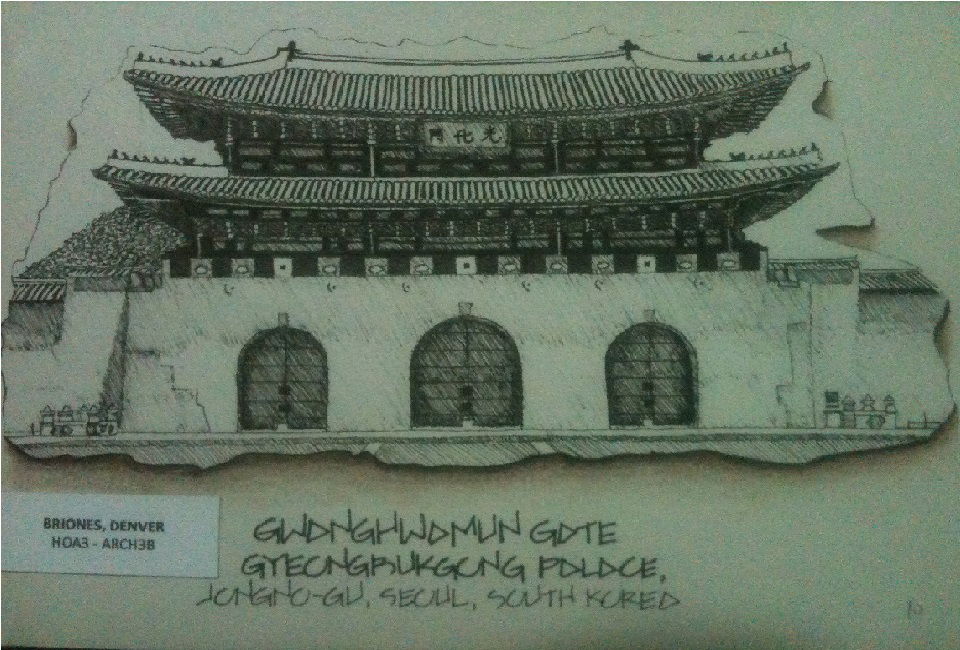 光化門
BRIONES, DENVER
HOA3 - ARCH3B
GWANGHWAMUN GATE
GYEONGBUKGONG PALACE,
JONGNO-GU, SEOUL, SOUTH KOREA